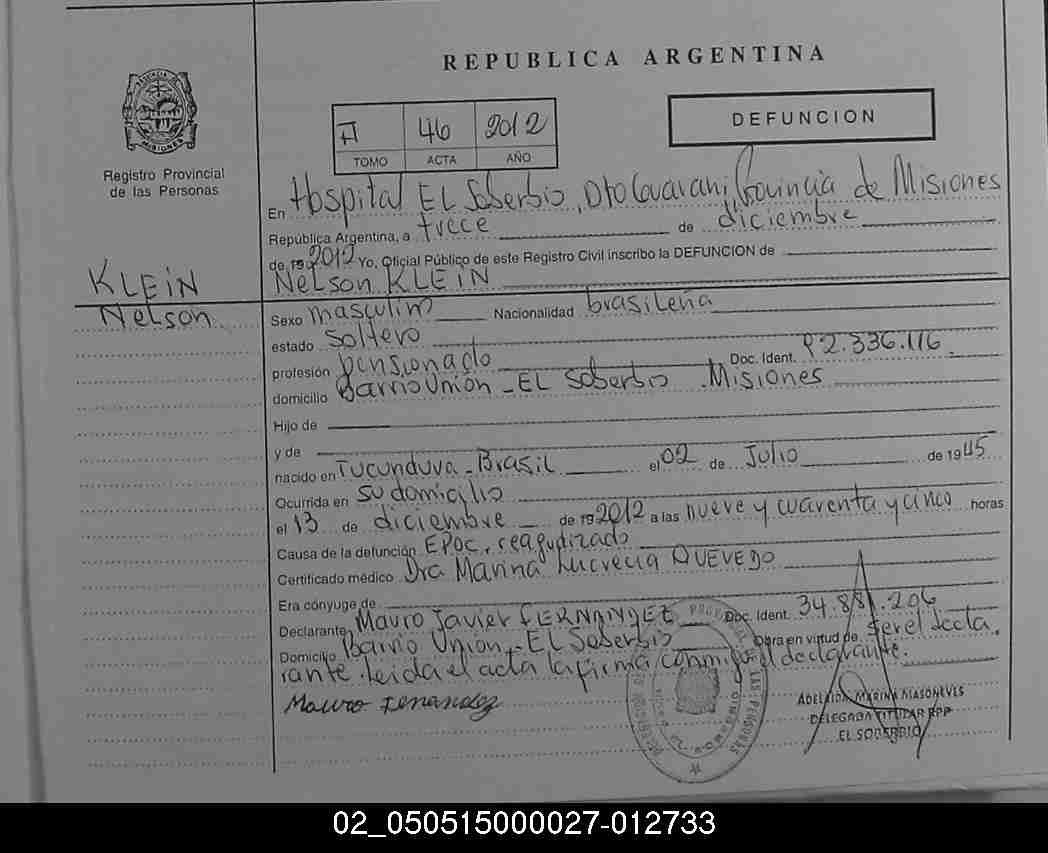 REPUBLICA ARGENTINA
46 2012
TOMO ACTA AÑO
DEFUNCION
PROVINCIA DE
MISIONES
Registro Provincial
de las Personas
En Hospital EL Soberbio, Dto Guarani, Provincia de Misiones
República Argentina, a trece de diciembre
de 19 2012 Yo, Oficial Público de este Registro Civil inscribo la DEFUNCION de
Nelson KLEIN
KLEIN
Nelson
Sexo masculino Nacionalidad brasileña
estado Soltero
profesión pensionado Doc. Ident. P2.336.116
domicilio Barrio Unión - EL Soberbio Misiones
Hijo de
y de
nacido en Tucunduva - Brasil el 02 de Julio de 1945
Ocurrida en su domicilio
el 13 de diciembre de 19 2012 a las nueve y cuarenta y cinco horas
Causa de la defunción EPOC, reagudizado
Certificado médico Dra Marina Lucrecia QUEVEDO
Era cónyuge de
Declarante Mauro Javier FERNANDEZ Doc. Ident. 34.881.206
Domicilio Barrio Unión - EL Soberbio Obra en virtud de ser el decla
rante. Leida el acta la firma conmigo el declarante.
Mauro Fernandez
ADELAIDA MARINA
DELEGADA TITULAR RPP
EL SOBERBIO
02_050515000027-012733